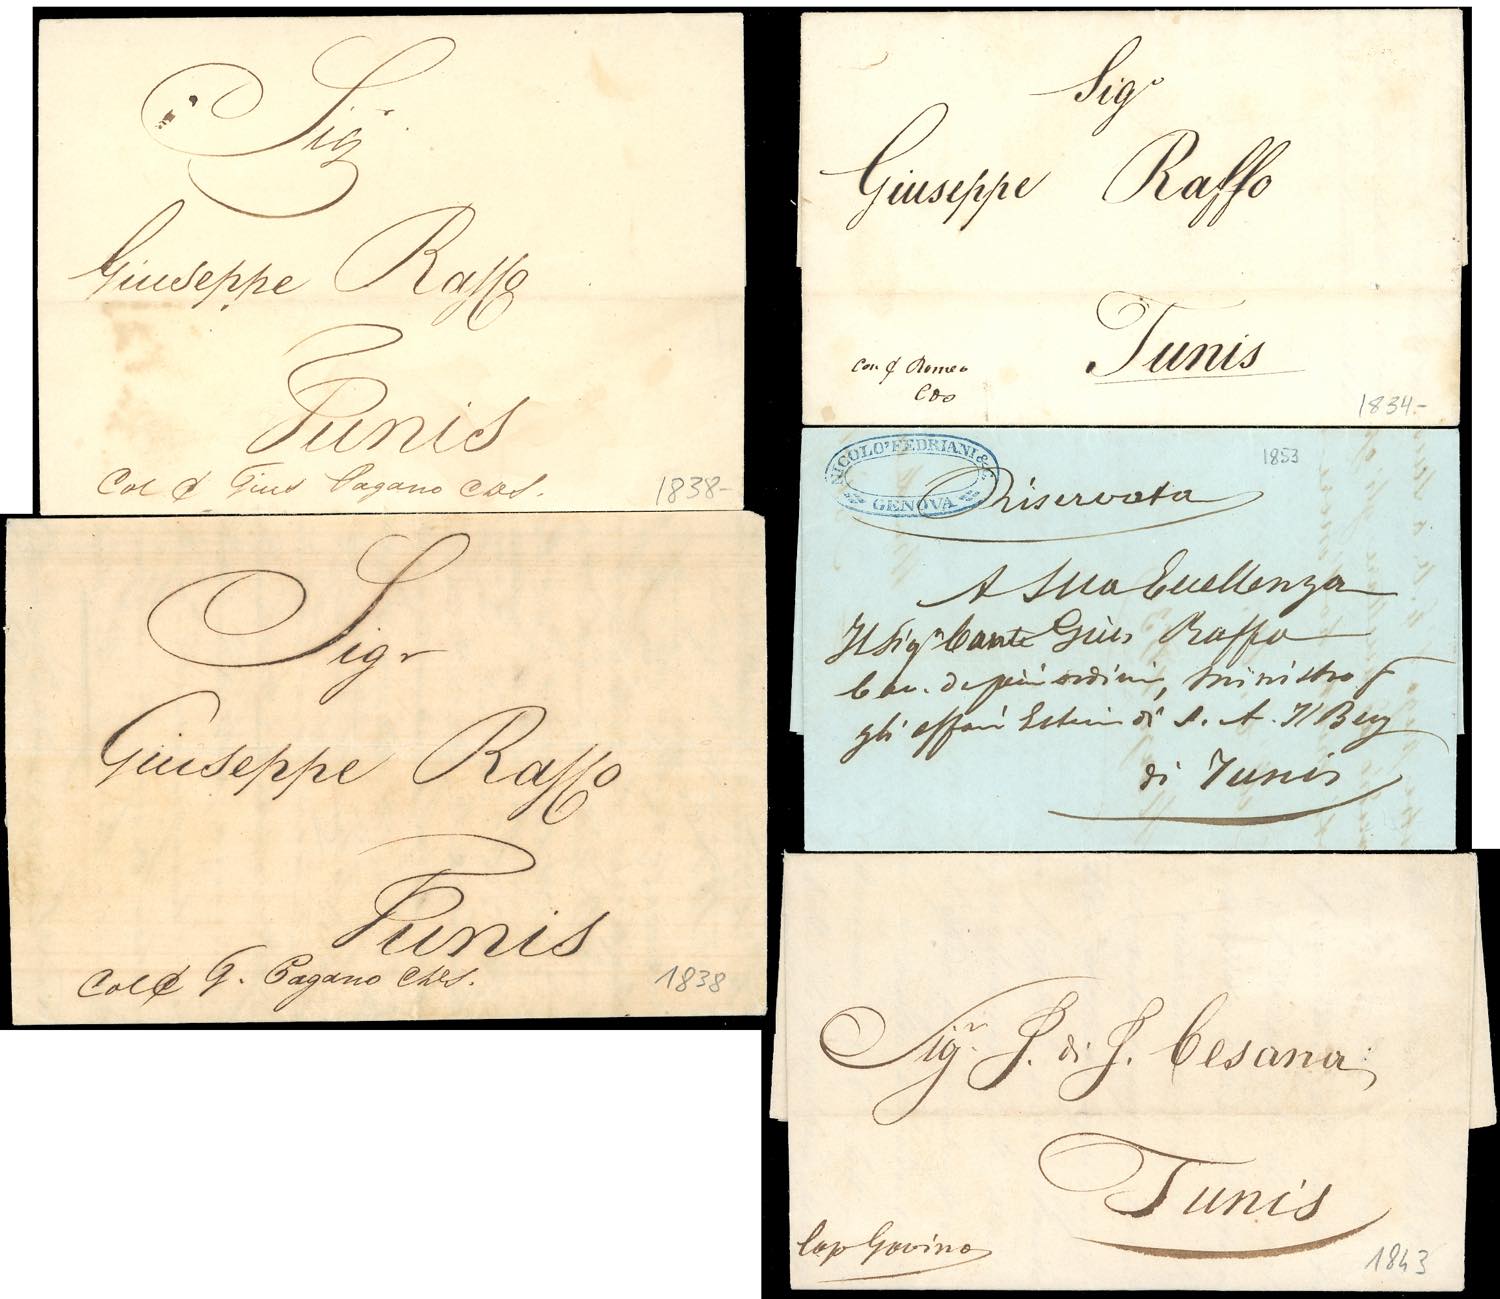 Sigr
Giuseppe Raffo
Tunis
Col Gius Pagano
1838-
Sigr
Giuseppe Raffo
Tunis
Col G. Pagano
1838
Sigr
Giuseppe Raffo
Tunis
Romeo
1834-
NICOLO' FEDRIANI & C.
GENOVA
1853
Riservata
A Sua Eccellenza
Il Sigr Conte Gius Raffo
Cav. di più ordini, Ministro
gli affari Esteri di S. A. Il Bey
di Tunis
Sigr J. di J. Cesana
Tunis
Cap Gavino
1843